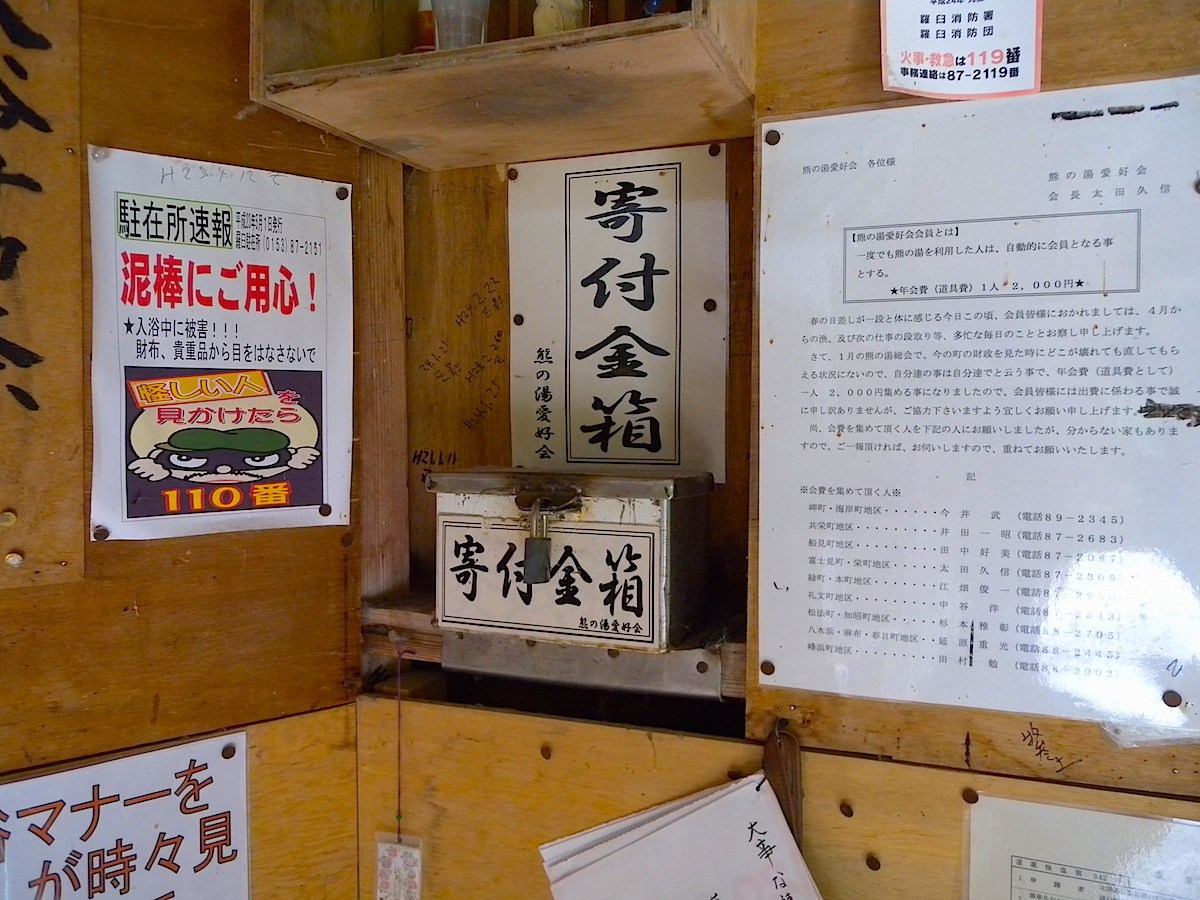 駐在所速報
平成20年5月1日発行
羅臼駐在所 (0153) 87-2151
泥棒にご用心！
★入浴中に被害！！！
財布、貴重品から目をはなさないで
怪しい人を
見かけたら
110番
寄付金箱
熊の湯愛好会
H24.2.22
H24.1.25
寄付金箱
熊の湯愛好会
羅臼消防署
羅臼消防団
火事・救急は119番
事務連絡は87-2119番
熊の湯愛好会 各位様
熊の湯愛好会
会長 太田久信
【熊の湯愛好会会員とは】
一度でも熊の湯を利用した人は、自動的に会員となる事
とする。
★年会費（道具費）1人 2，000円★
春の日差しが一段と体に感じる今日この頃、会員皆様におかれましては、4月か
らの漁、及び次の仕事の段取り等、多忙な毎日のこととお察し申し上げます。
さて、1月の熊の湯総会で、今の町の財政を見た時にどこが壊れても直してもら
える状況にないので、自分達の事は自分達でと云う事で、年会費（道具費として）
一人 2，000円集める事になりましたので、会員皆様には出費に係わる事で誠
に申し訳ありませんが、ご協力下さいますよう宜しくお願い申し上げます。
尚、会費を集めて頂く人を下記の人にお願いしましたが、分からない家もありま
すので、ご一報頂ければ、お伺いしますので、重ねてお願いいたします。
記
※会費を集めて頂く人※
岬町・海岸町地区・・・・・・・今井 武 （電話89－2345）
共栄町地区・・・・・・・・・・井田一昭（電話87－2683）
船見町地区・・・・・・・・・・田中好美（電話87－2087）
富士見町・栄町地区・・・・・・太田久信（電話87－2309）
緑町・本町地区・・・・・・・・江畑俊一（電話87－
礼文町地区・・・・・・・・・・中谷 洋 （電話
松法町・知昭町地区・・・・・・杉本雅彰（電話88－2705）
八木浜・麻布・春日町地区・・・延原重光（電話88－2445）
峰浜町地区・・・・・・・・・・田村 勉 （電話88－3002）
マナーを
が時々見
大事な